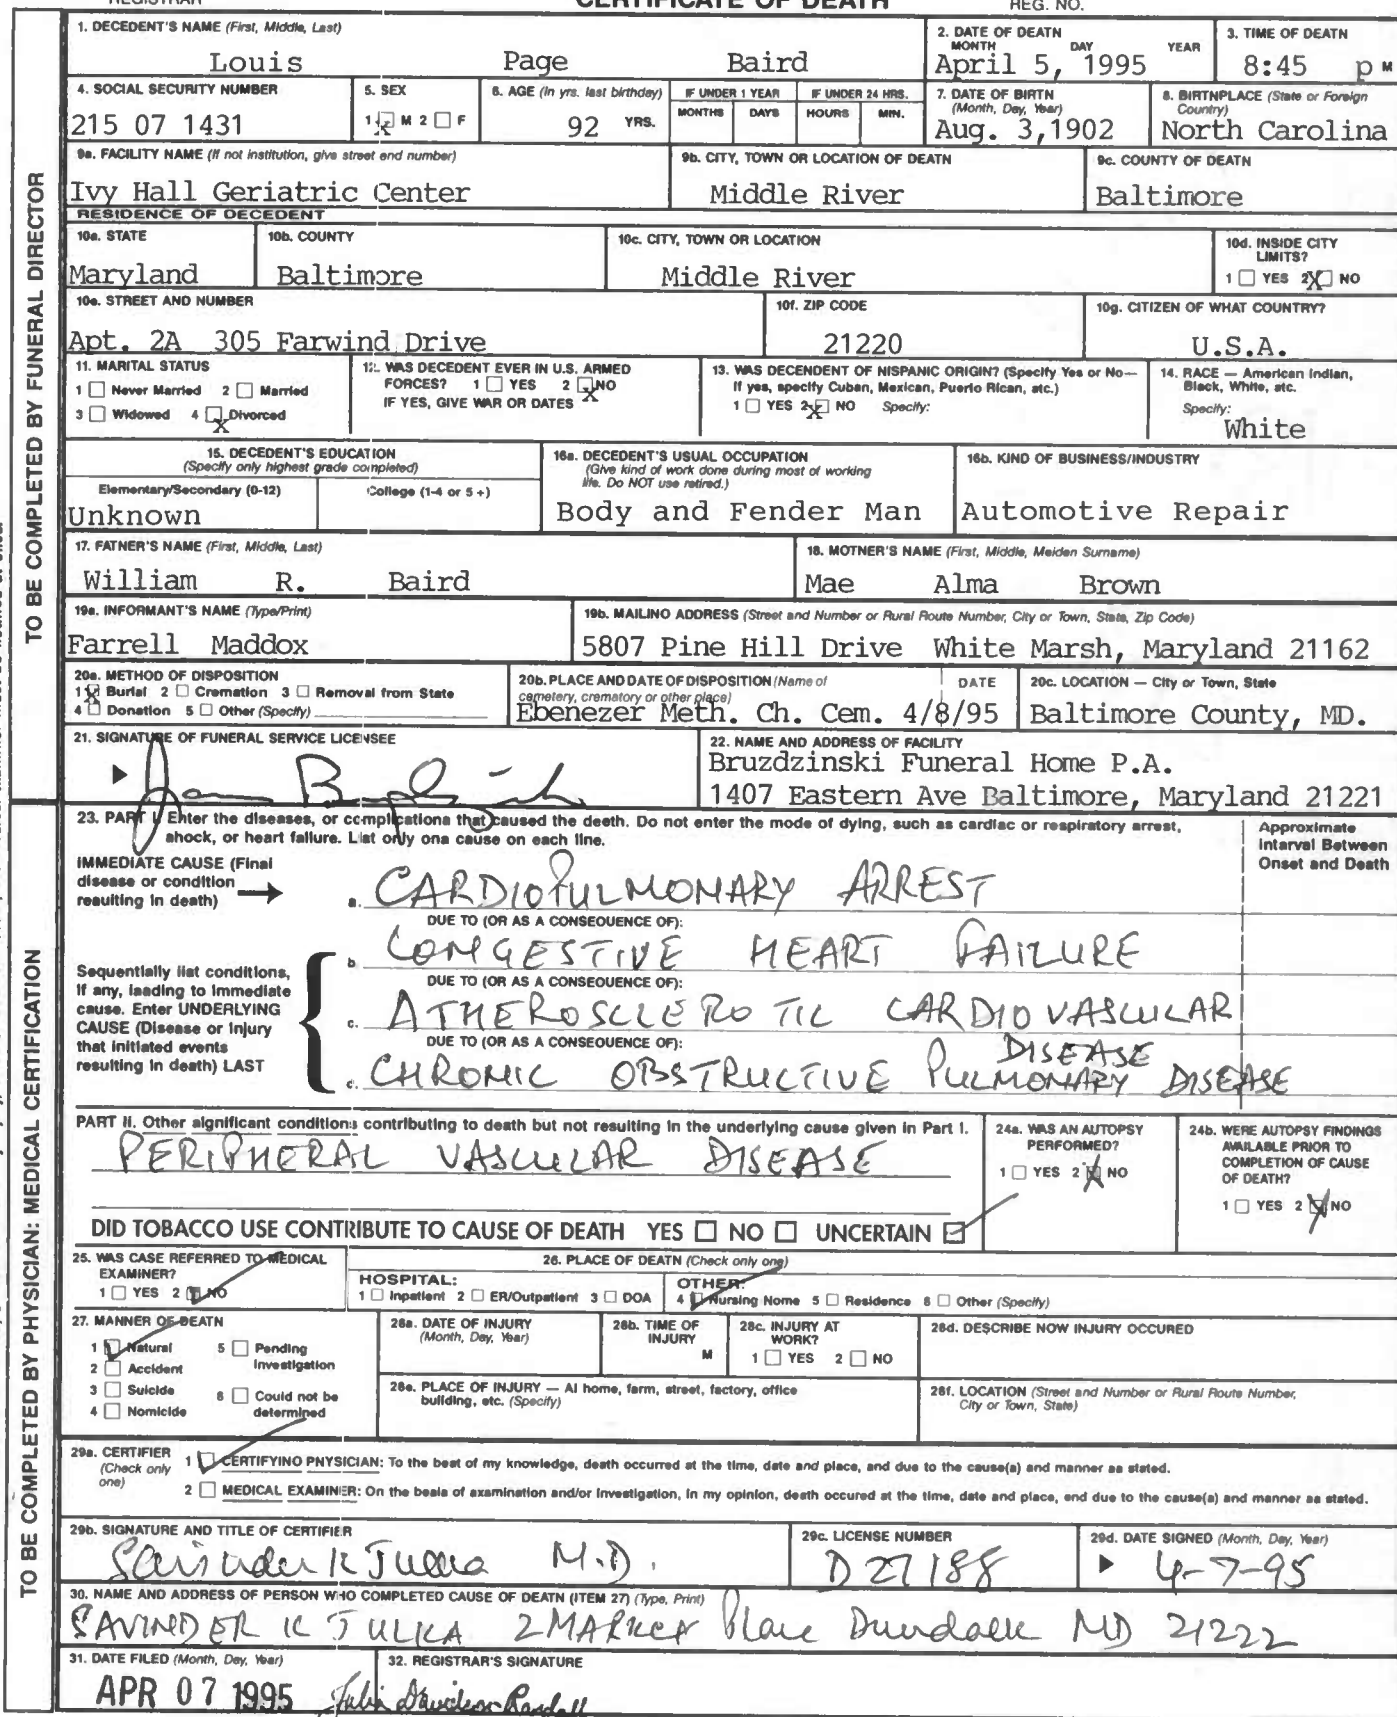 REGISTRAR CERTIFICATE OF DEATH REG. NO.
1. DECEDENT'S NAME (First, Middle, Last)
Louis Page Baird
2. DATE OF DEATH
MONTH DAY YEAR
April 5, 1995
3. TIME OF DEATH
8:45 p M
4. SOCIAL SECURITY NUMBER
215 07 1431
5. SEX
1 X M 2 F
6. AGE (In yrs. last birthday)
92 YRS.
IF UNDER 1 YEAR
MONTHS DAYS
IF UNDER 24 HRS.
HOURS MIN.
7. DATE OF BIRTN
(Month, Day, Year)
Aug. 3,1902
8. BIRTNPLACE (State or Foreign
Country)
North Carolina
9a. FACILITY NAME (If not institution, give street end number)
Ivy Hall Geriatric Center
9b. CITY, TOWN OR LOCATION OF DEATH
Middle River
9c. COUNTY OF DEATH
Baltimore
RESIDENCE OF DECEDENT
10a. STATE
Maryland
10b. COUNTY
Baltimore
10c. CITY, TOWN OR LOCATION
Middle River
10d. INSIDE CITY
LIMITS?
1 YES 2 X NO
10e. STREET AND NUMBER
Apt. 2A 305 Farwind Drive
10f. ZIP CODE
21220
10g. CITIZEN OF WHAT COUNTRY?
U.S.A.
11. MARITAL STATUS
1 Never Married 2 Married
3 Widowed 4 X Divorced
12. WAS DECEDENT EVER IN U.S. ARMED
FORCES? 1 YES 2 X NO
IF YES, GIVE WAR OR DATES
13. WAS DECENDENT OF NISPANIC ORIGIN? (Specify Yes or No—
If yes, specify Cuban, Mexican, Puerto Rican, atc.)
1 YES 2 X NO Specify:
14. RACE — American Indian,
Black, White, atc.
Specify:
White
15. DECEDENT'S EDUCATION
(Specify only highest grade completed)
Elementary/Secondary (0-12) College (1-4 or 5 +)
Unknown
16a. DECEDENT'S USUAL OCCUPATION
(Give kind of work done during most of working
life. Do NOT use retired.)
Body and Fender Man
16b. KIND OF BUSINESS/INDUSTRY
Automotive Repair
17. FATNER'S NAME (First, Middle, Last)
William R. Baird
18. MOTNER'S NAME (First, Middle, Meiden Surname)
Mae Alma Brown
19a. INFORMANT'S NAME (Type/Print)
Farrell Maddox
19b. MAILINO ADDRESS (Street and Number or Rural Route Number, City or Town, State, Zip Code)
5807 Pine Hill Drive White Marsh, Maryland 21162
20a. METHOD OF DISPOSITION
1 X Burial 2 Cremation 3 Removal from State
4 Donation 5 Other (Specify)
20b. PLACE AND DATE OF DISPOSITION (Name of
cemetery, crematory or other place) DATE
Ebenezer Meth. Ch. Cem. 4/8/95
20c. LOCATION — City or Town, State
Baltimore County, MD.
21. SIGNATURE OF FUNERAL SERVICE LICENSEE
22. NAME AND ADDRESS OF FACILITY
Bruzdzinski Funeral Home P.A.
1407 Eastern Ave Baltimore, Maryland 21221
23. PART I. Enter the diseases, or complications that caused the death. Do not enter the mode of dying, such as cardiac or respiratory arrest,
ahock, or heart failure. List only ona cause on each line.
Approximate
Interval Between
Onset and Death
IMMEDIATE CAUSE (Final
disease or condition
resulting in death)
a. CARDIOPULMONARY ARREST
DUE TO (OR AS A CONSEOUENCE OF):
b CONGESTIVE HEART FAILURE
DUE TO (OR AS A CONSEQUENCE OF):
Sequentially list conditions,
If any, leading to immediate
cause. Enter UNDERLYING
CAUSE (Disease or injury
that initiated events
resulting in death) LAST
c. ATHEROSCLEROTIC CARDIOVASCULAR
DISEASE
DUE TO (OR AS A CONSEQUENCE OF):
CHRONIC OBSTRUCTIVE PULMONARY DISEASE
PART II. Other aignificant conditions contributing to death but not resulting in the underlying cause given in Part I.
PERIPHERAL VASCULAR DISEASE
24a. WAS AN AUTOPSY
PERFORMED?
1 YES 2 X NO
24b. WERE AUTOPSY FINDINGS
AVAILABLE PRIOR TO
COMPLETION OF CAUSE
OF DEATH?
1 YES 2 X NO
DID TOBACCO USE CONTRIBUTE TO CAUSE OF DEATH YES NO UNCERTAIN
25. WAS CASE REFERRED TO MEDICAL
EXAMINER?
1 YES 2 NO
26. PLACE OF DEATH (Check only one)
HOSPITAL:
1 Inpatient 2 ER/Outpatient 3 DOA
OTHER:
4 Nursing Nome 5 Residence 6 Other (Specify)
27. MANNER OF DEATH
1 Natural 5 Pending
Investigation
2 Accident
3 Suicide 6 Could not be
determined
4 Nomicide
28a. DATE OF INJURY
(Month, Day, Year)
28b. TIME OF
INJURY
M
28c. INJURY AT
WORK?
1 YES 2 NO
28d. DESCRIBE NOW INJURY OCCURED
28e. PLACE OF INJURY — Al home, farm, street, factory, office
building, etc. (Specify)
28f. LOCATION (Street and Number or Rural Route Number,
City or Town, State)
29a. CERTIFIER
(Check only
one)
1 CERTIFYINO PNYSICIAN: To the beat of my knowledge, death occurred at the time, date and place, and due to the cause(a) and manner aa stated.
2 MEDICAL EXAMINER: On the beaia of axamination and/or Investigation, in my opinion, death occured at the time, date and place, end due to the cause(a) and manner aa stated.
29b. SIGNATURE AND TITLE OF CERTIFIER
Savinder K Julka M.D.
29c. LICENSE NUMBER
D 27188
29d. DATE SIGNED (Month, Day, Year)
4-7-95
30. NAME AND ADDRESS OF PERSON WHO COMPLETED CAUSE OF DEATH (ITEM 27) (Type, Print)
SAVINDER K JULKA 2 MARKET Place Dundalk MD 21222
31. DATE FILED (Month, Day, Year)
APR 07 1995
32. REGISTRAR'S SIGNATURE
Julia Davidson-Randall
TO BE COMPLETED BY FUNERAL DIRECTOR
TO BE COMPLETED BY PHYSICIAN: MEDICAL CERTIFICATION